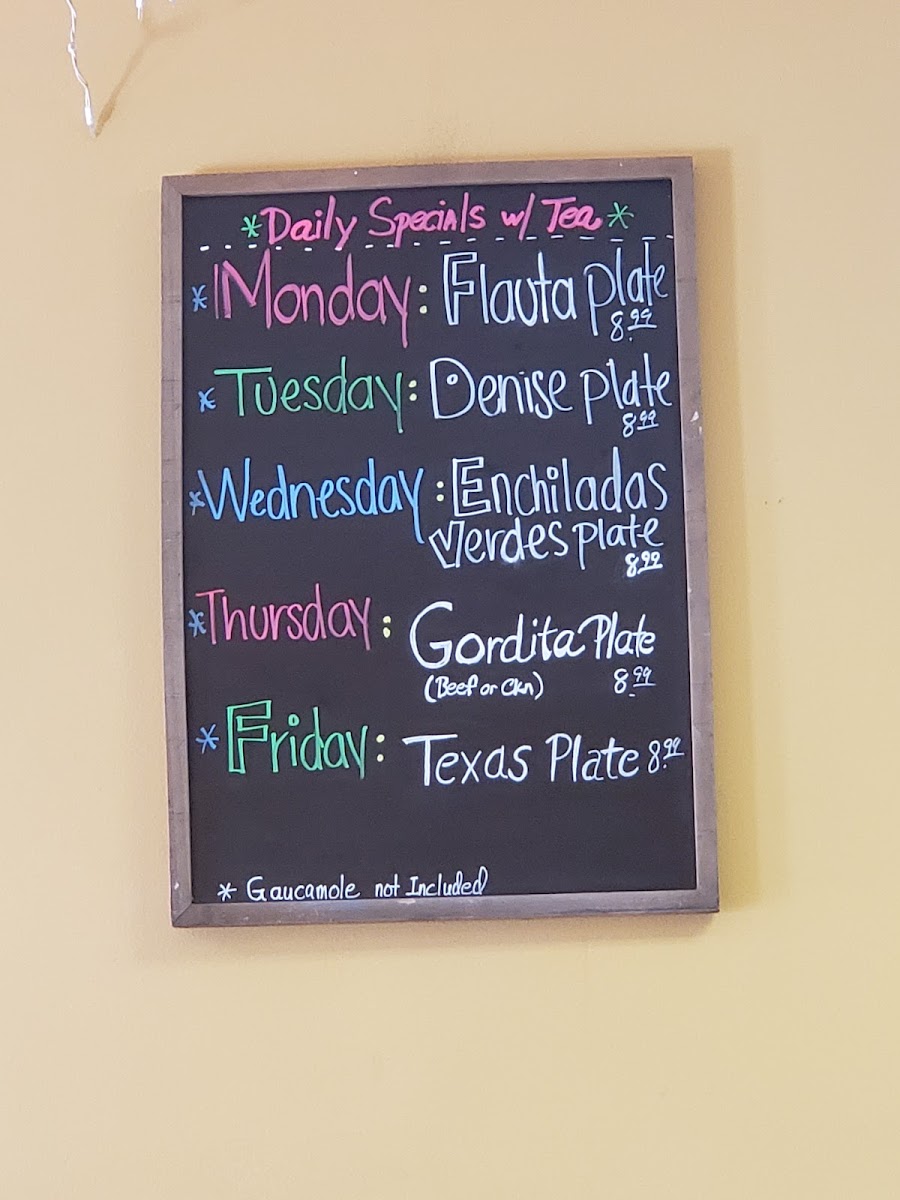 *Daily Specials w/ Tea*
*Monday: Flauta Plate
8.99
*Tuesday: Denise Plate
8.99
*Wednesday: Enchiladas
Verdes Plate
8.99
*Thursday: Gordita Plate
(Beef or Ckn) 8.99
*Friday: Texas Plate 8.99
* Gaucamole not Included